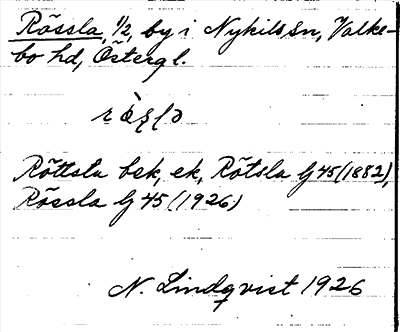 Rössla, 1/2, by i Nykils sn, Valke-
bo hd, Östergl.
Röttsla bek, ek, Rötsla G45 (1882),
Rössla G 45 (1926)
N. Lindqvist 1926